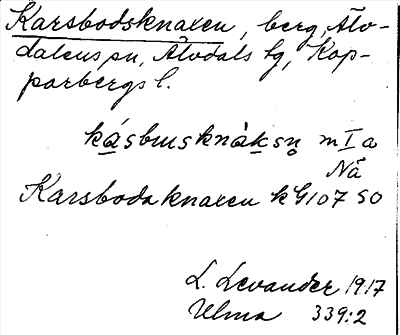 Karsbodsknaxen, berg, Älv-
dalens sn, Älvdals tg, Kop-
parbergs l.
kásbusknàksṇ m I a
Nå
Karsbodaknaxen kG107 SO
L. Levander 1917
Ulma 339:2